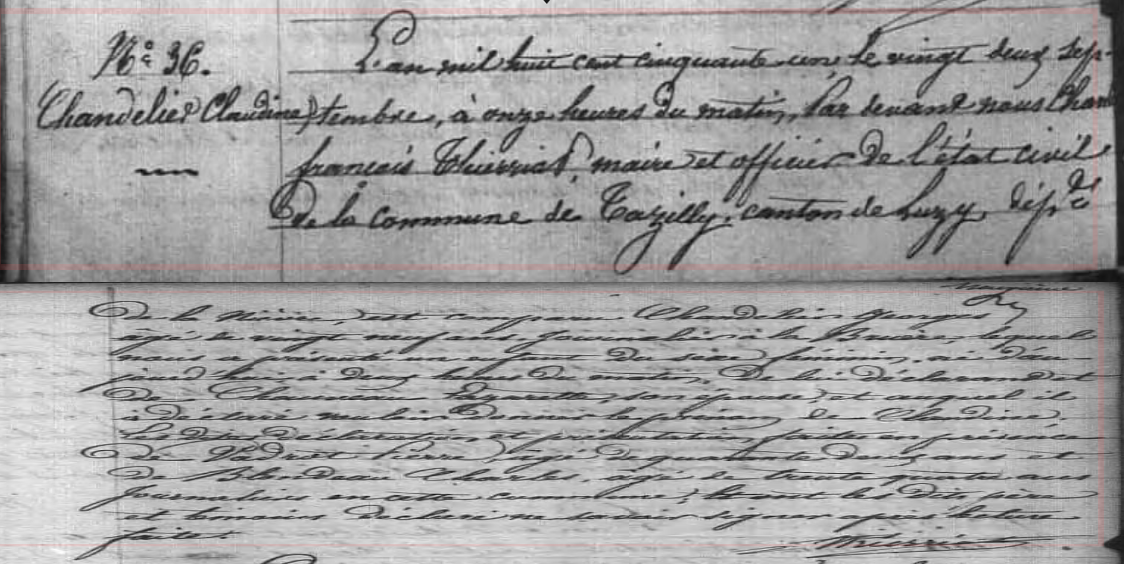 N° 36.
Chandelier Claudine
L'an mil huit cent cinquante un le vingt deux sep-
tembre, à onze heures du matin, Par devant nous
françois Thierriat, maire et officier de l'état civil
De la commune de Tazilly, canton de Luzy, dép.t
De la Nièvre, est comparu Chandelier Georges
âgé de vingt neuf ans journalier à la lequel
nous a présenté un enfant du sexe féminin, né
jourd'hui à deux heures du matin, De lui déclarant et
De Lazarette, son épouse, et auquel il
a déclaré vouloir donner le prénom de Claudine
Les dites déclaration et présentation faites en présence
De Pierre, âgé de quarante deux ans et
De Blondeau Charles, âgé de trente ans
journaliers en cette commune; et ont les dits père
et témoins déclaré ne savoir signer après lecture
faite.
Thierriat